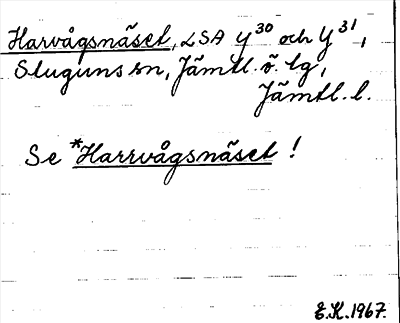 Harvågsnäset, LSA Y³⁰ och Y³¹,
Stuguns sn, Jämtl. ö. tg,
Jämtl. l.
Se *Harrvågsnäset !
E.K. 1967.